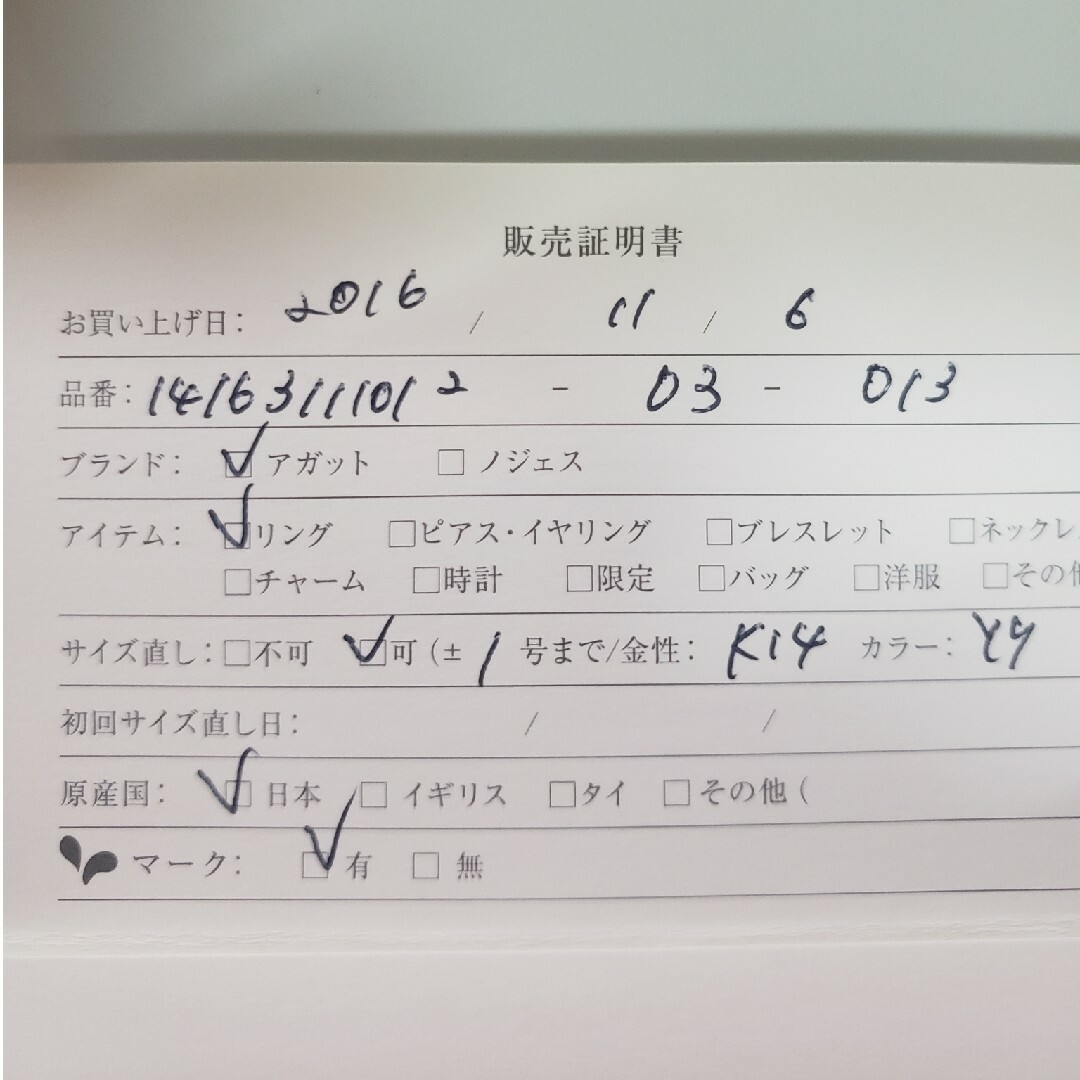 販売証明書
お買い上げ日： 2016 / 11 / 6
品番：14163111012 - 03 - 013
ブランド： ☑ アガット □ ノジェス
アイテム： ☑リング □ピアス・イヤリング □ブレスレット □ネックレ
□チャーム □時計 □限定 □バッグ □洋服 □その他
サイズ直し：□不可 ☑可 (± 1 号まで/金性： K14 カラー： YG
初回サイズ直し日： / /
原産国： ☑ 日本 □ イギリス □タイ □その他 (
マーク： ☑ 有 □ 無